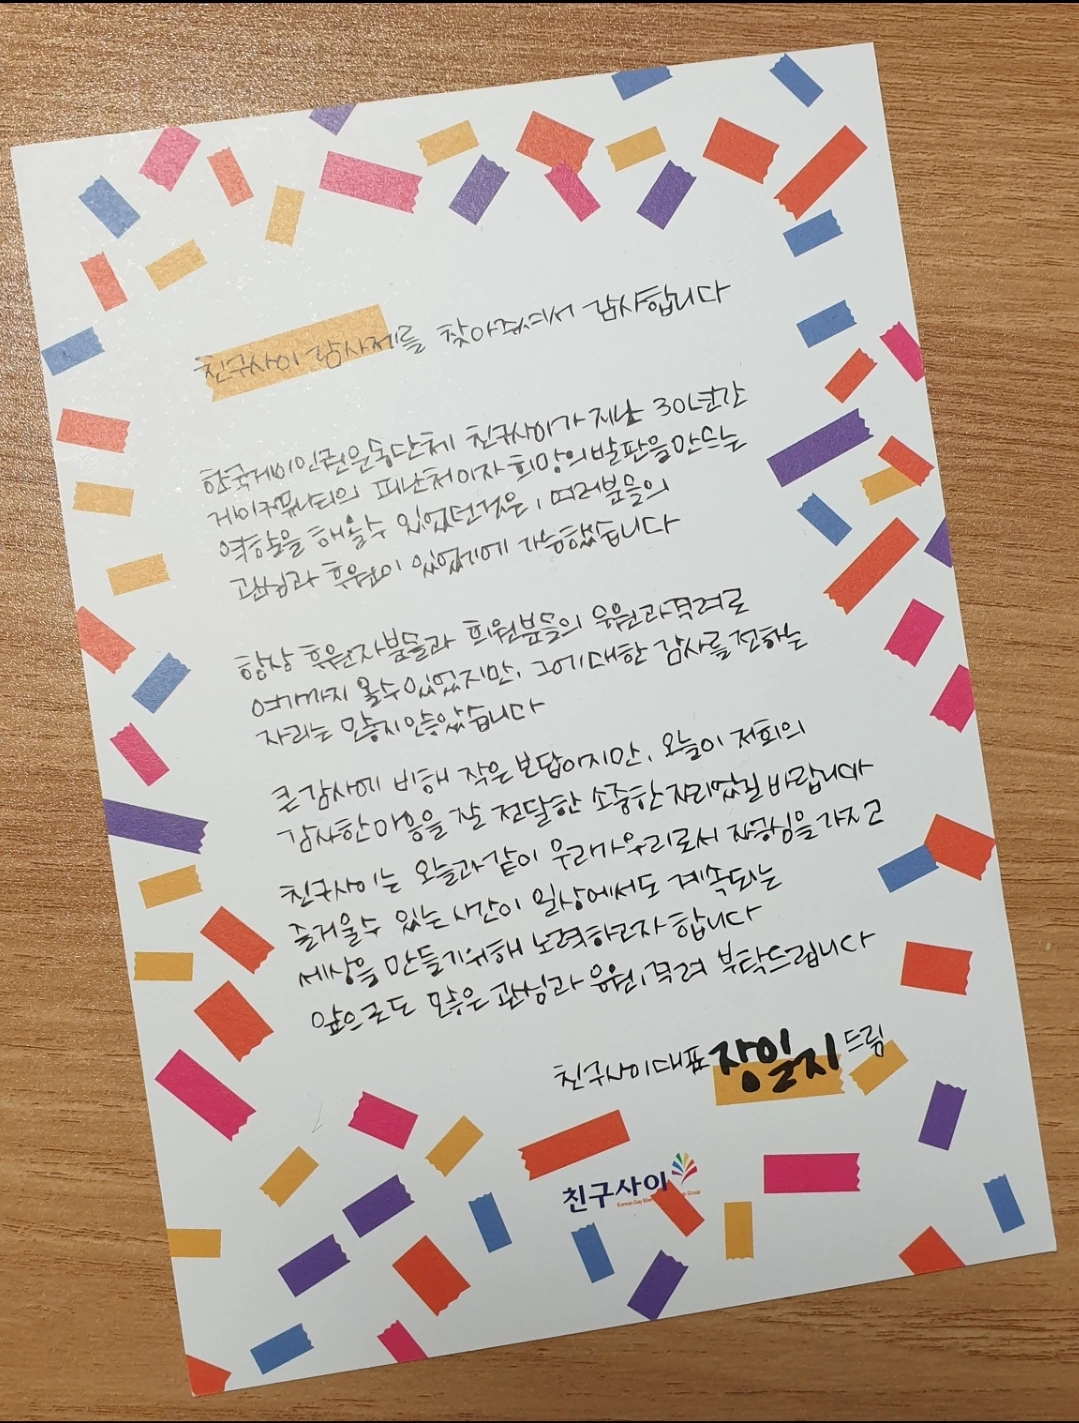 친구사이 감사제를 찾아주셔서 감사합니다
한국게이인권운동단체 친구사이가 지난 30년간
게이커뮤니티의 피난처이자 희망의 발판을 만드는
역할을 해올 수 있었던 것은, 여러분들의
관심과 후원이 있었기에 가능했습니다
항상 후원자분들과 회원분들의 응원과 격려로
여기까지 올 수 있었지만, 그에 대한 감사를 전하는
자리는 많지 않았습니다
큰 감사에 비해 작은 보답이지만, 오늘이 저희의
감사한 마음을 잘 전달한 소중한 자리였길 바랍니다
친구사이는 오늘과 같이 우리가 우리로서 자긍심을 가지고
즐거울 수 있는 시간이 일상에서도 계속되는
세상을 만들기 위해 노력하고자 합니다
앞으로도 많은 관심과 응원, 격려 부탁드립니다
친구사이 대표 장일지 드림
친구사이
Korean Gay